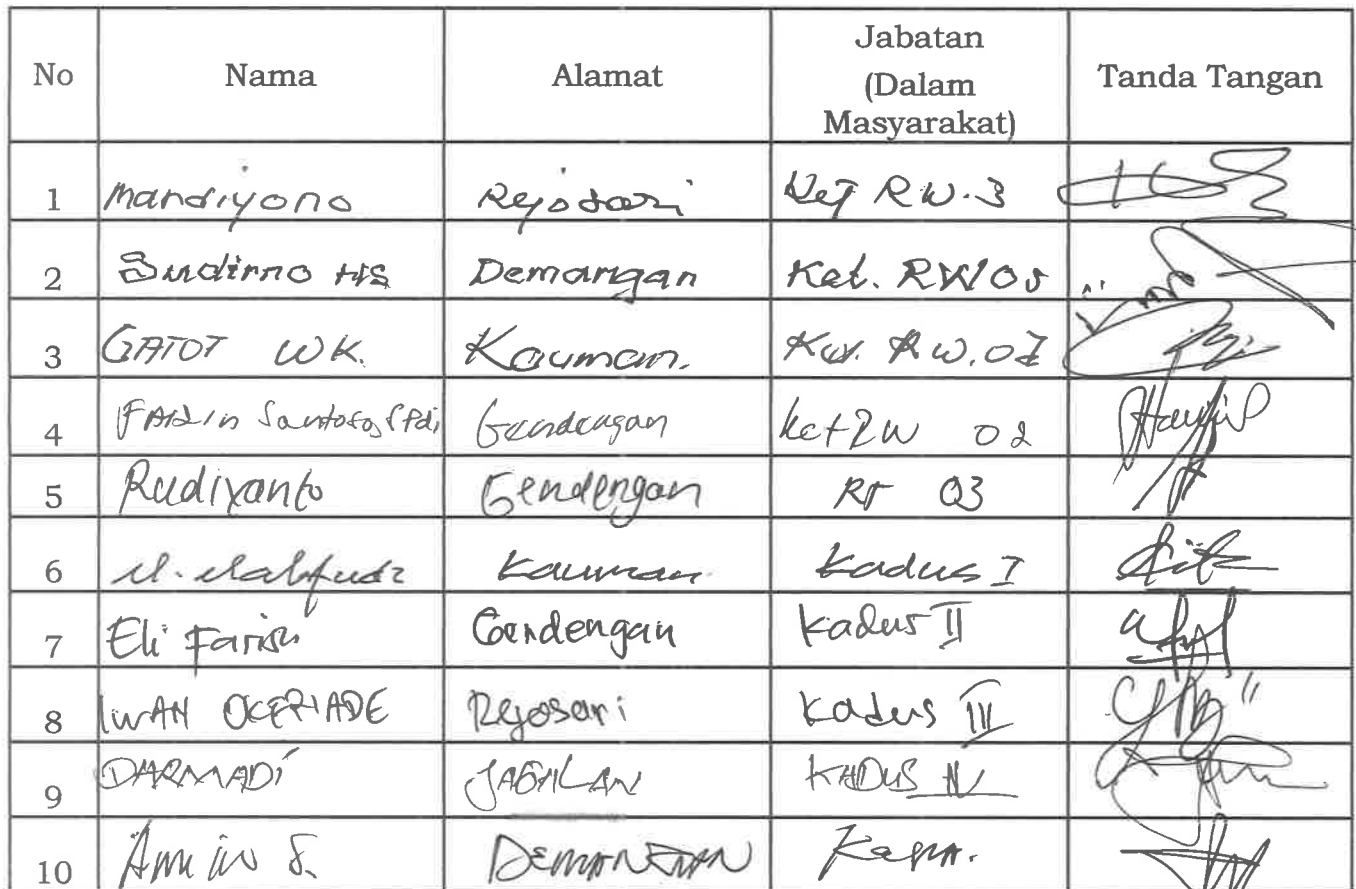 No Nama Alamat Jabatan (Dalam Masyarakat) Tanda Tangan
1 Mandiyono Rejosari Ket RW.3
2 Sudirno HS Demangan Ket. RW 05
3 GATOT WK. Kauman. Ket. RW. 01
4 Santoso, SPdi Gendengan Ket RW 02
5 Rudiyanto Gendengan RT 03
6 M. Mahfudz Kauman Kadus I
7 Eli Gendengan Kadus II
8 IWAN Rejosari Kadus III
9 DARMADI JAGALAN KADUS IV
10 Amin S. DEMANGAN